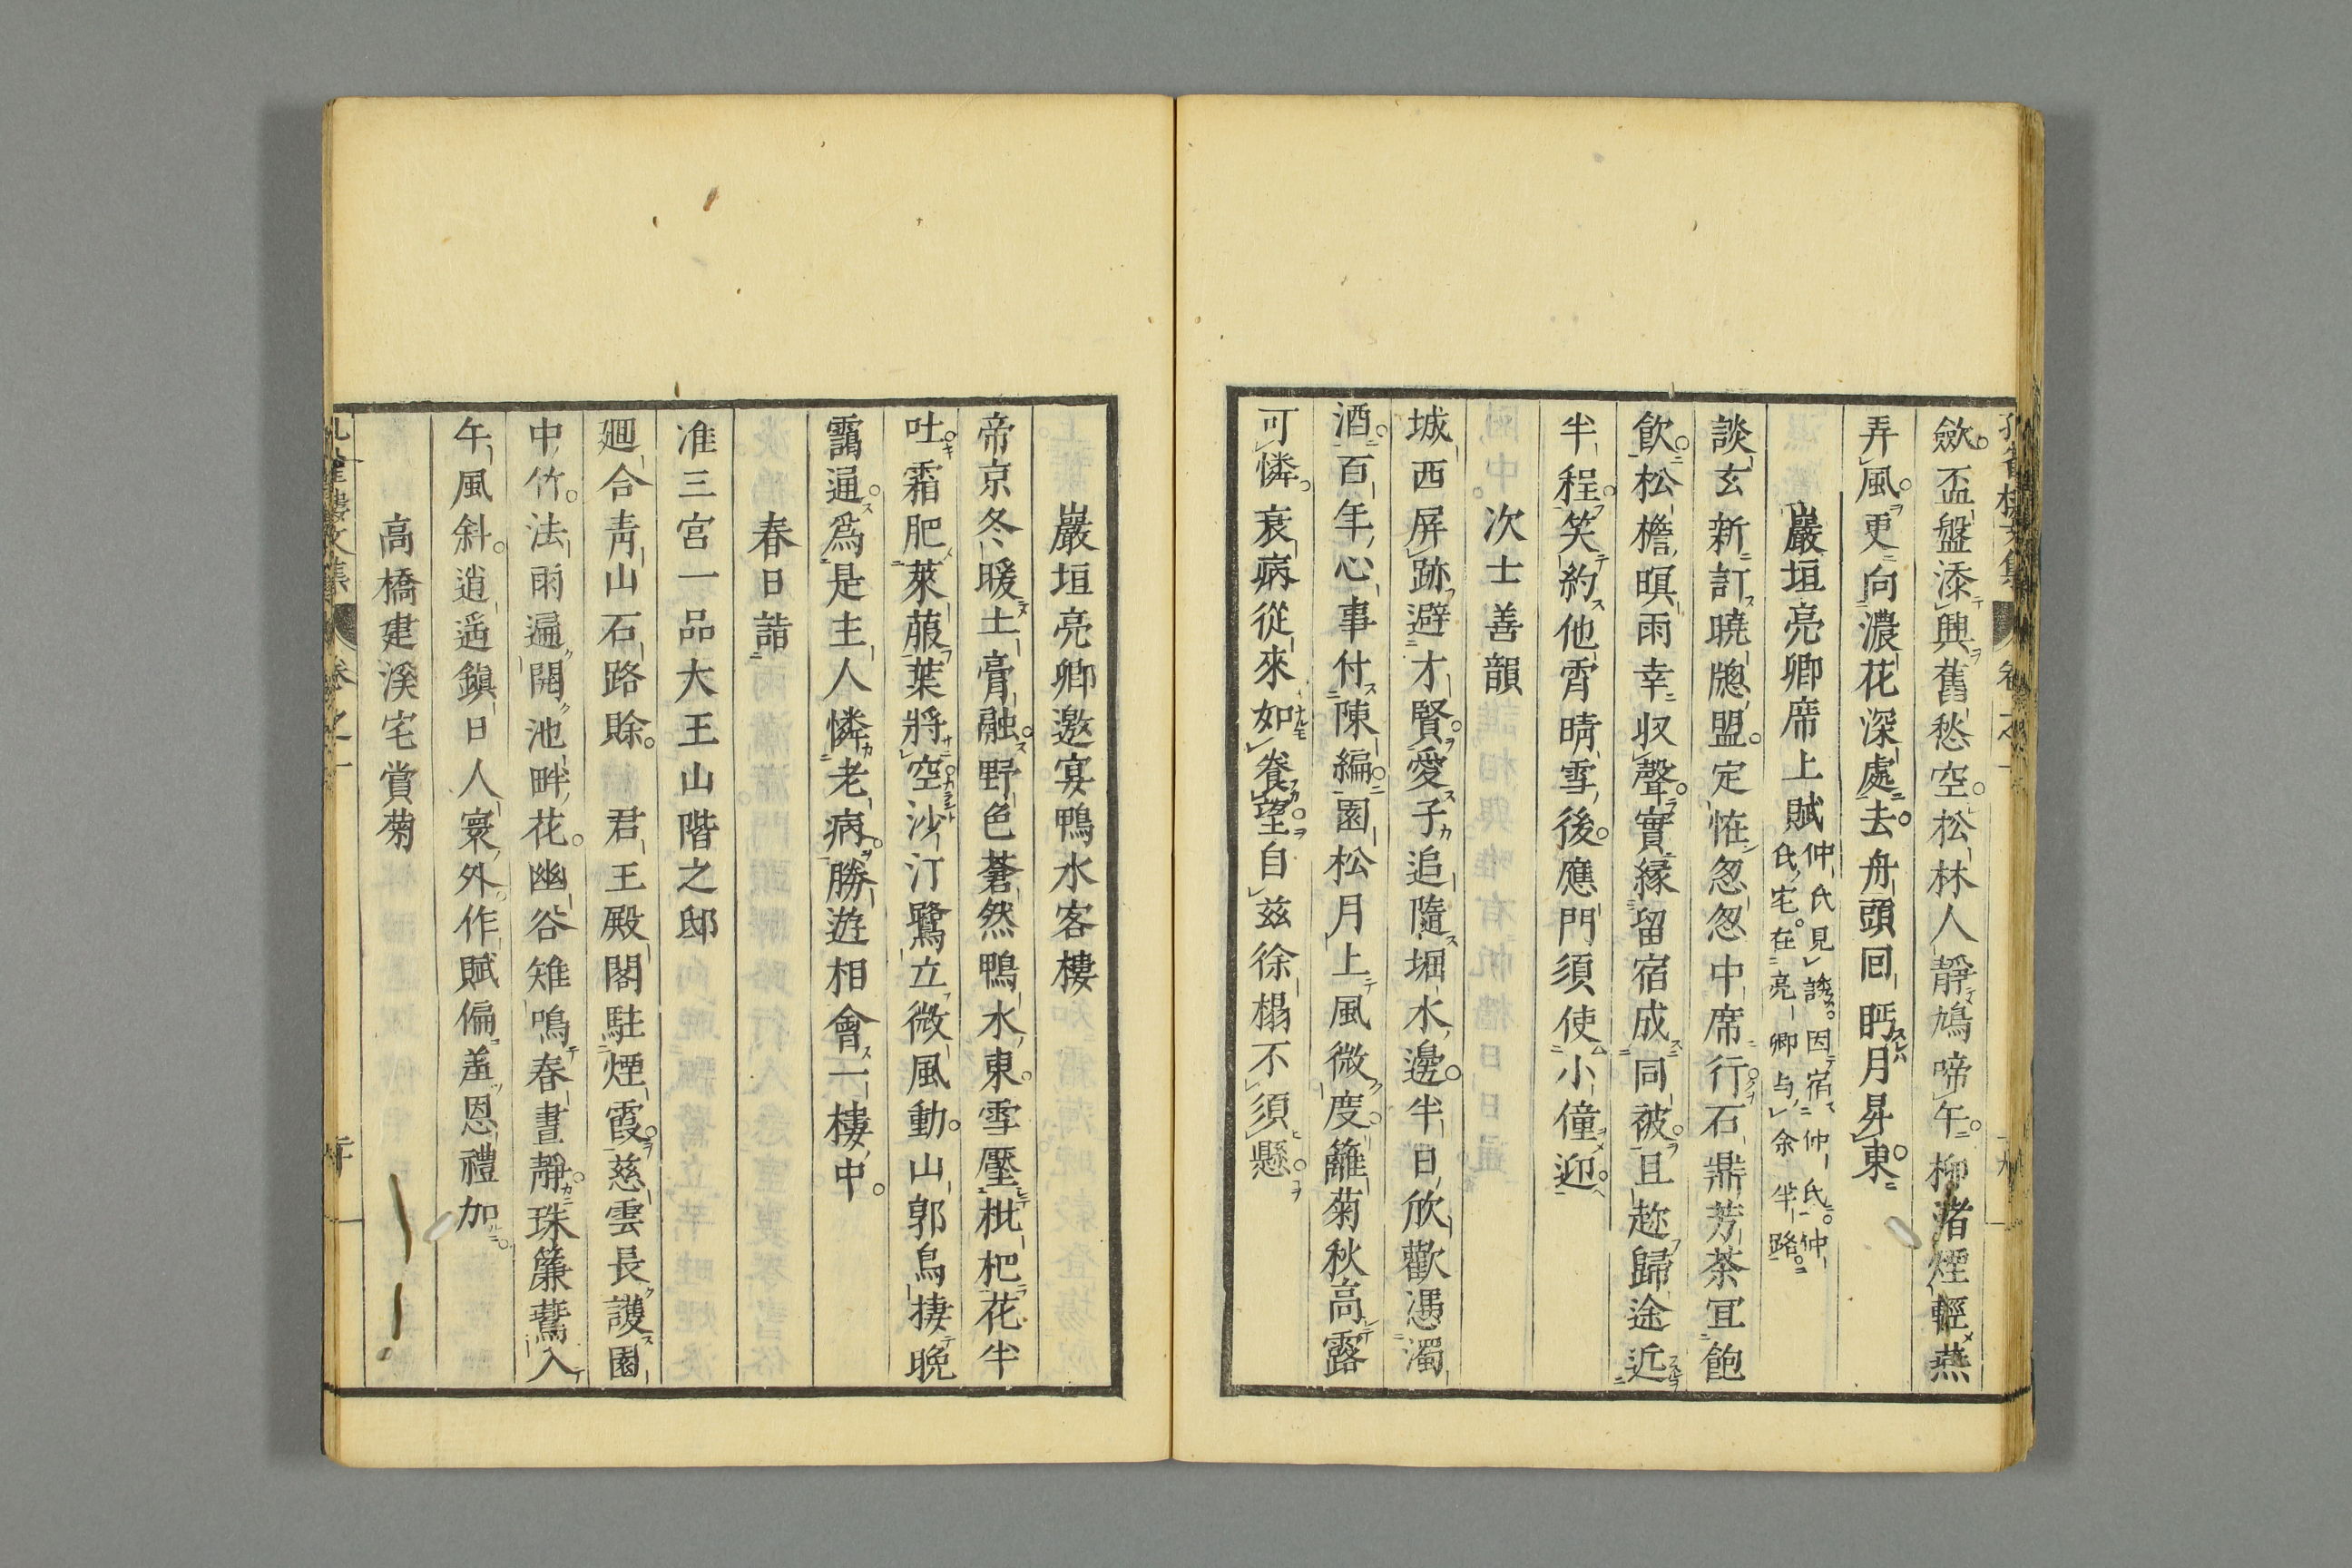 斂盃盤添興舊愁空松林人靜鳩啼午柳渚煙輕燕
弄風更向濃花深處去舟頭回眄月昇東
巖垣亮卿席上賦
仲氏見誘因宿仲氏仲
氏宅在亮卿与余半路
談玄新訂曉牕盟定恠怱怱中席行石鼎芳茶冝飽
飮松檐暝雨幸収聲實緣留宿成同被且趂歸途近
半程笑約他霄晴雪後應門須使小僮迎
次士善韻
城西屏跡避才賢愛子追隨堀水邊半日欣歡憑濁
酒百年心事付陳編園松月上風微度籬菊秋高露
可憐衰病從來如養望自茲徐榻不須懸
巖垣亮卿邀宴鴨水客樓
帝京冬暖土膏融野色蒼然鴨水東雪壓枇杷花半
吐霜肥萊菔葉將空沙汀鷺立微風動山郭鳥棲晚
靄通爲是主人憐老病勝遊相會一樓中
春日詣
准三宮一品大王山階之邸
廻合靑山石路賒君王殿閣駐煙霞慈雲長護園
中竹法雨遍開池畔花幽谷雉鳴春晝靜珠簾鶯入
午風斜逍遥鎮日人寰外作賦偏羞恩禮加
高橋建溪宅賞菊
孔雀樓文集 卷之一